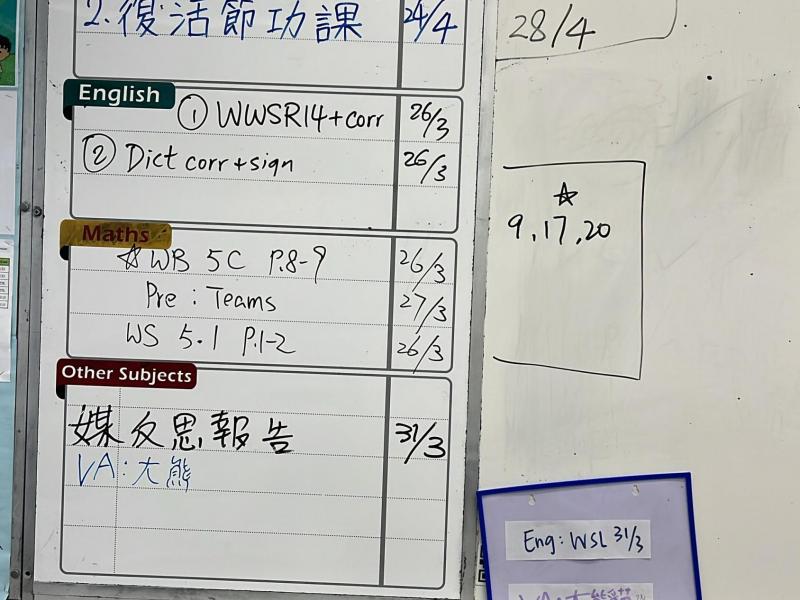 2. 復活節功課 24/4
28/4
English
① WWSR14+corr 26/3
② Dict corr+sign 26/3
Maths
☆ WB 5C P.8-9 26/3
Pre : Teams 27/3
WS 5.1 P.1-2 26/3
☆
9, 17, 20
Other Subjects
媒反思報告 31/3
VA: 大熊
Eng: WSL 31/3
VA: 大熊貓